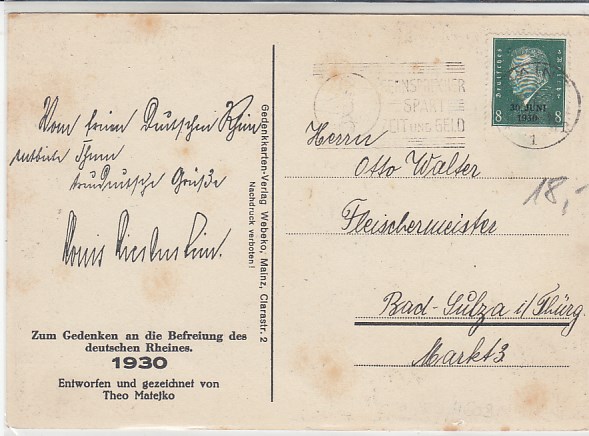 Vom freien Deutschen Rhein
entbiete Ihnen
treudeutsche Grüße
Zum Gedenken an die Befreiung des
deutschen Rheines.
1930
Entworfen und gezeichnet von
Theo Matejko
Gedenkkarten-Verlag Webeko, Mainz, Clarastr. 2
Nachdruck verboten!
FERNSPRECHER
SPART
ZEIT UND GELD
Deutsches Reich
30. JUNI
1930
8 8
1
Herrn
Otto Walter
18,-
Fleischermeister
Bad-Sulza i/Thürg.
Markt 3.